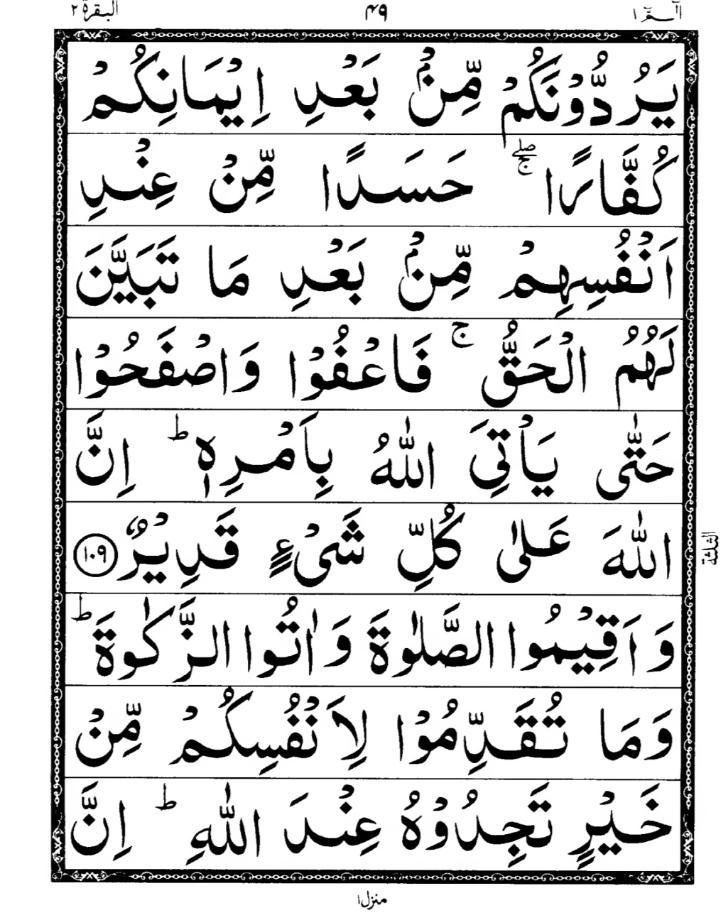 الٓـمّٓ ١ ۴۹ البقرة ٢
يَرُدُّوْنَكُمْ مِّنْۢ بَعْدِ اِيْمَانِكُمْ
كُفَّارًا ۚۖ حَسَدًا مِّنْ عِنْدِ
اَنْفُسِهِمْ مِّنْۢ بَعْدِ مَا تَبَيَّنَ
لَهُمُ الْحَقُّ ۚ فَاعْفُوْا وَاصْفَحُوْا
حَتّٰى يَاْتِىَ اللّٰهُ بِاَمْرِهٖ ؕ اِنَّ
اللّٰهَ عَلٰى كُلِّ شَىْءٍ قَدِيْرٌ ١٠٩
وَاَقِيْمُوا الصَّلٰوةَ وَاٰتُوا الزَّكٰوةَ ؕ
وَمَا تُقَدِّمُوْا لِاَنْفُسِكُمْ مِّنْ
خَيْرٍ تَجِدُوْهُ عِنْدَ اللّٰهِ ؕ اِنَّ
الثلثة
منزل ١